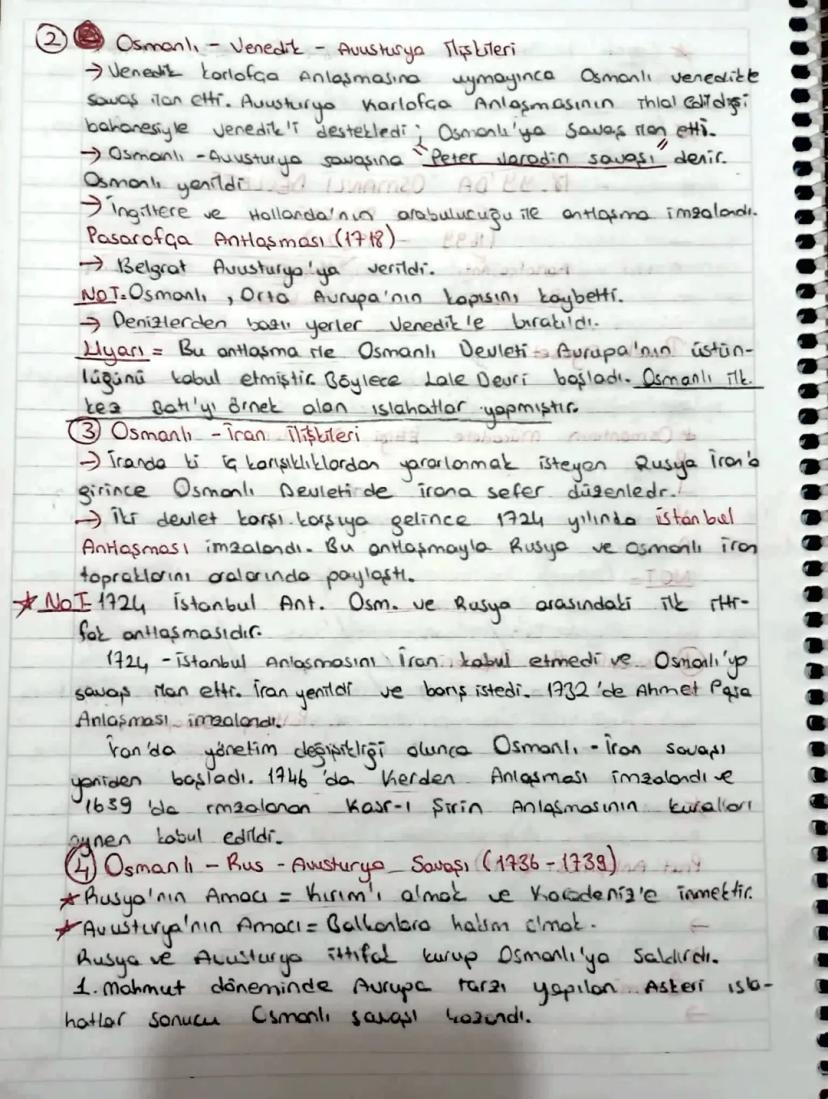 2 Osmanlı - Venedik - Avusturya İlişkileri
→ Venedik Karlofça Anlaşmasına uymayınca Osmanlı venedikte
savaş ilan etti. Avusturya Karlofça Anlaşmasının ihlal edildiği
bahanesiyle Venedik'i destekledi ; Osmanlı'ya Savaş ilan etti.
→ Osmanlı - Avusturya savaşına "Peter Varadin savaşı" denir.
Osmanlı yenildi
→ İngiltere ve Hollanda'nın arabulucuğu ile antlaşma imzalandı.
Pasarofça Antlaşması (1718)
→ Belgrat Avusturya'ya verildi.
NOT: Osmanlı, Orta Avrupa'nın kapısını kaybetti.
→ Denizlerden bazı yerler Venedik'e bırakıldı.
Uyarı = Bu antlaşma ile Osmanlı Devleti Avrupa'nın üstün-
lüğünü kabul etmiştir. Böylece Lale Devri başladı. Osmanlı ilk
kez Batı'yı örnek alan ıslahatlar yapmıştır.
3 Osmanlı - İran İlişkileri
→ İranda ki iç karışıklıklardan yararlanmak isteyen Rusya İran'a
girince Osmanlı Devleti de irana sefer düzenledi.
→ İki devlet karşı karşıya gelince 1724 yılında istanbul
Antlaşması imzalandı. Bu antlaşmayla Rusya ve Osmanlı iran
topraklarını aralarında paylaştı.
★ NOT: 1724 İstanbul Ant. Osm. ve Rusya arasındaki ilk itti-
fak antlaşmasıdır.
1724 - istanbul Anlaşmasını İran kabul etmedi ve Osmanlı'ya
savaş ilan etti. İran yenildi ve barış istedi. 1732'de Ahmet Paşa
Anlaşması imzalandı.
İran'da yönetim değişikliği olunca Osmanlı - İran savaşı
yeniden başladı. 1746'da Kerden Anlaşması imzalandı ve
1639'da imzalanan Kasr-ı Şirin Anlaşmasının kuralları
aynen kabul edildi.
4 Osmanlı - Rus - Avusturya Savaşı (1736 - 1739)
★ Rusya'nın Amacı = Kırım'ı almak ve Karadeniz'e inmektir.
★ Avusturya'nın Amacı = Balkanlara hakim olmak.
Rusya ve Avusturya ittifak kurup Osmanlı'ya saldırdı.
1. Mahmut döneminde Avrupa tarzı yapılan Askeri ısla-
hatlar sonucu Osmanlı savaşı kazandı.